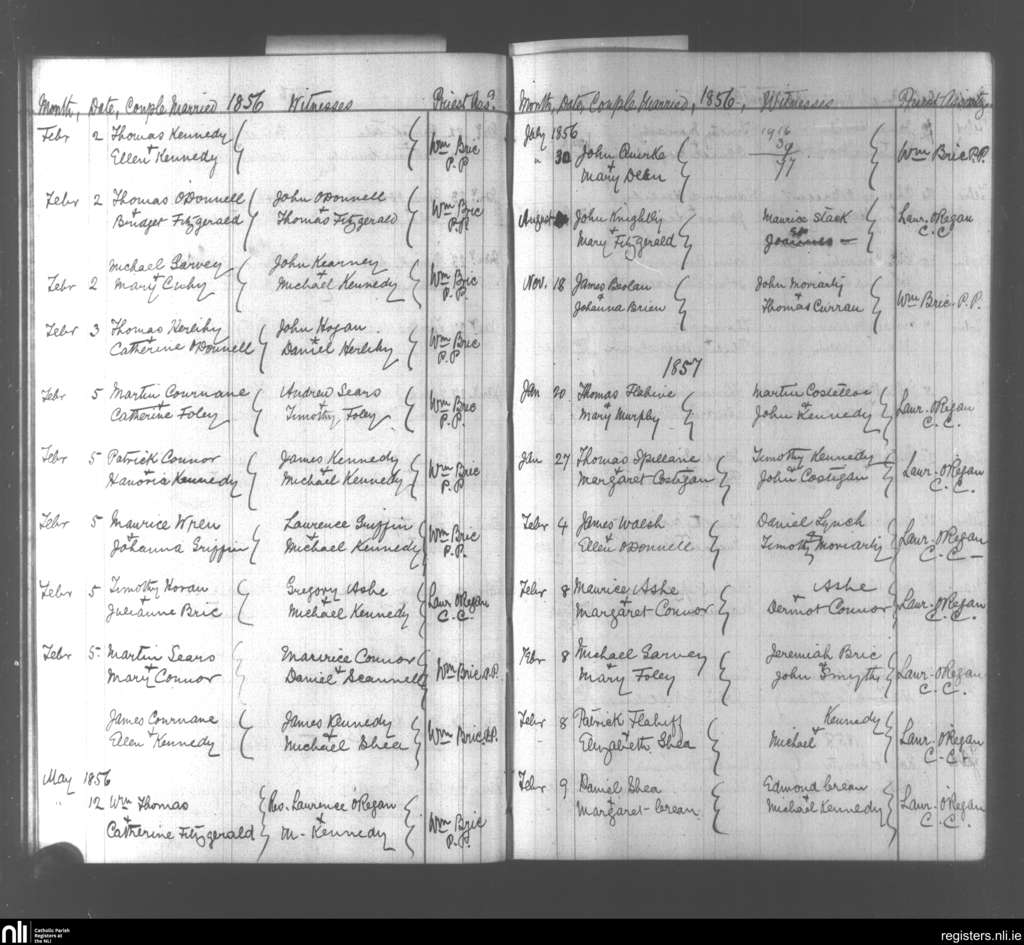 Month, Date, Couple Married 1856 Witnesses Priest Assg.
Febr 2 Thomas Kennedy Wm Bric
+ Ellen Kennedy P.P
Febr 2 Thomas O'Donnell John O'Donnell Wm Bric
+ Bridget Fitzgerald + Thomas Fitzgerald P.P.
Michael Garvey John Kearney
Febr 2 + Mary Cuhy + Michael Kennedy Wm Bric P.P.
Febr 3 Thomas Herlihy John Hogan Wm Bric
+ Catherine O'Donnell + Daniel Herlihy P.P
Febr 5 Martin Cournane Andrew Sears Wm Bric
+ Catherine Foley + Timothy Foley P.P.
Febr 5 Patrick Connor James Kennedy Wm Bric
+ Hanoria Kennedy + Michael Kennedy P.P
Febr 5 Maurice Wren Laurence Griffin Wm Bric
+ Johanna Griffin + Michael Kennedy P.P.
Febr 5 Timothy Horan Gregory Ashe Laur. O'Regan
+ Julianne Bric + Michael Kennedy C.C.
Febr 5 Martin Sears Maurice Connor
+ Mary Connor + Daniel Scannell Wm Bric P.P.
James Cournane James Kennedy
+ Ellen Kennedy + Michael Shea Wm Bric P.P.
May 1856
" 12 Wm Thomas Res. Laurence O'Regan Wm Bric
+ Catherine Fitzgerald + M. Kennedy P.P.
Month, Date, Couple Married, 1856, Witnesses Priest
July 1856 1916
" 30 John Quirke 39 Wm Bric P.P.
+ Mary Deen 57
August John Knightly Maurice Stack Laur. O'Regan
+ Mary Fitzgerald C.C.
Nov. 18 James Beolan John Moriarty Wm Bric P.P.
+ Johanna Brien + Thomas Curran
1857
Jan 20 Thomas Flahive Martin Costelloe Laur. O'Regan
+ Mary Murphy + John Kennedy C.C.
Jan 27 Thomas Spillane Timothy Kennedy Laur. O'Regan
+ Margaret Costigan + John Costigan C.C.
Febr 4 James Walsh Daniel Lynch Laur. O'Regan
+ Ellen O'Donnell + Timothy Moriarty C.C.
Febr 8 Maurice Ashe Ashe Laur. O'Regan
+ Margaret Connor + Dermot Connor C.C.
Febr 8 Michael Garvey Jeremiah Bric Laur. O'Regan
+ Mary Foley + John Smyth C.C.
Febr 8 Patrick Flahiff Kennedy Laur. O'Regan
+ Elizabeth Shea + Michael C.C.
Febr 9 Daniel Shea Edmond Crean Laur. O'Regan
+ Margaret Crean + Michael Kennedy C.C.
nli Catholic Parish
Registers at
the NLI
registers.nli.ie